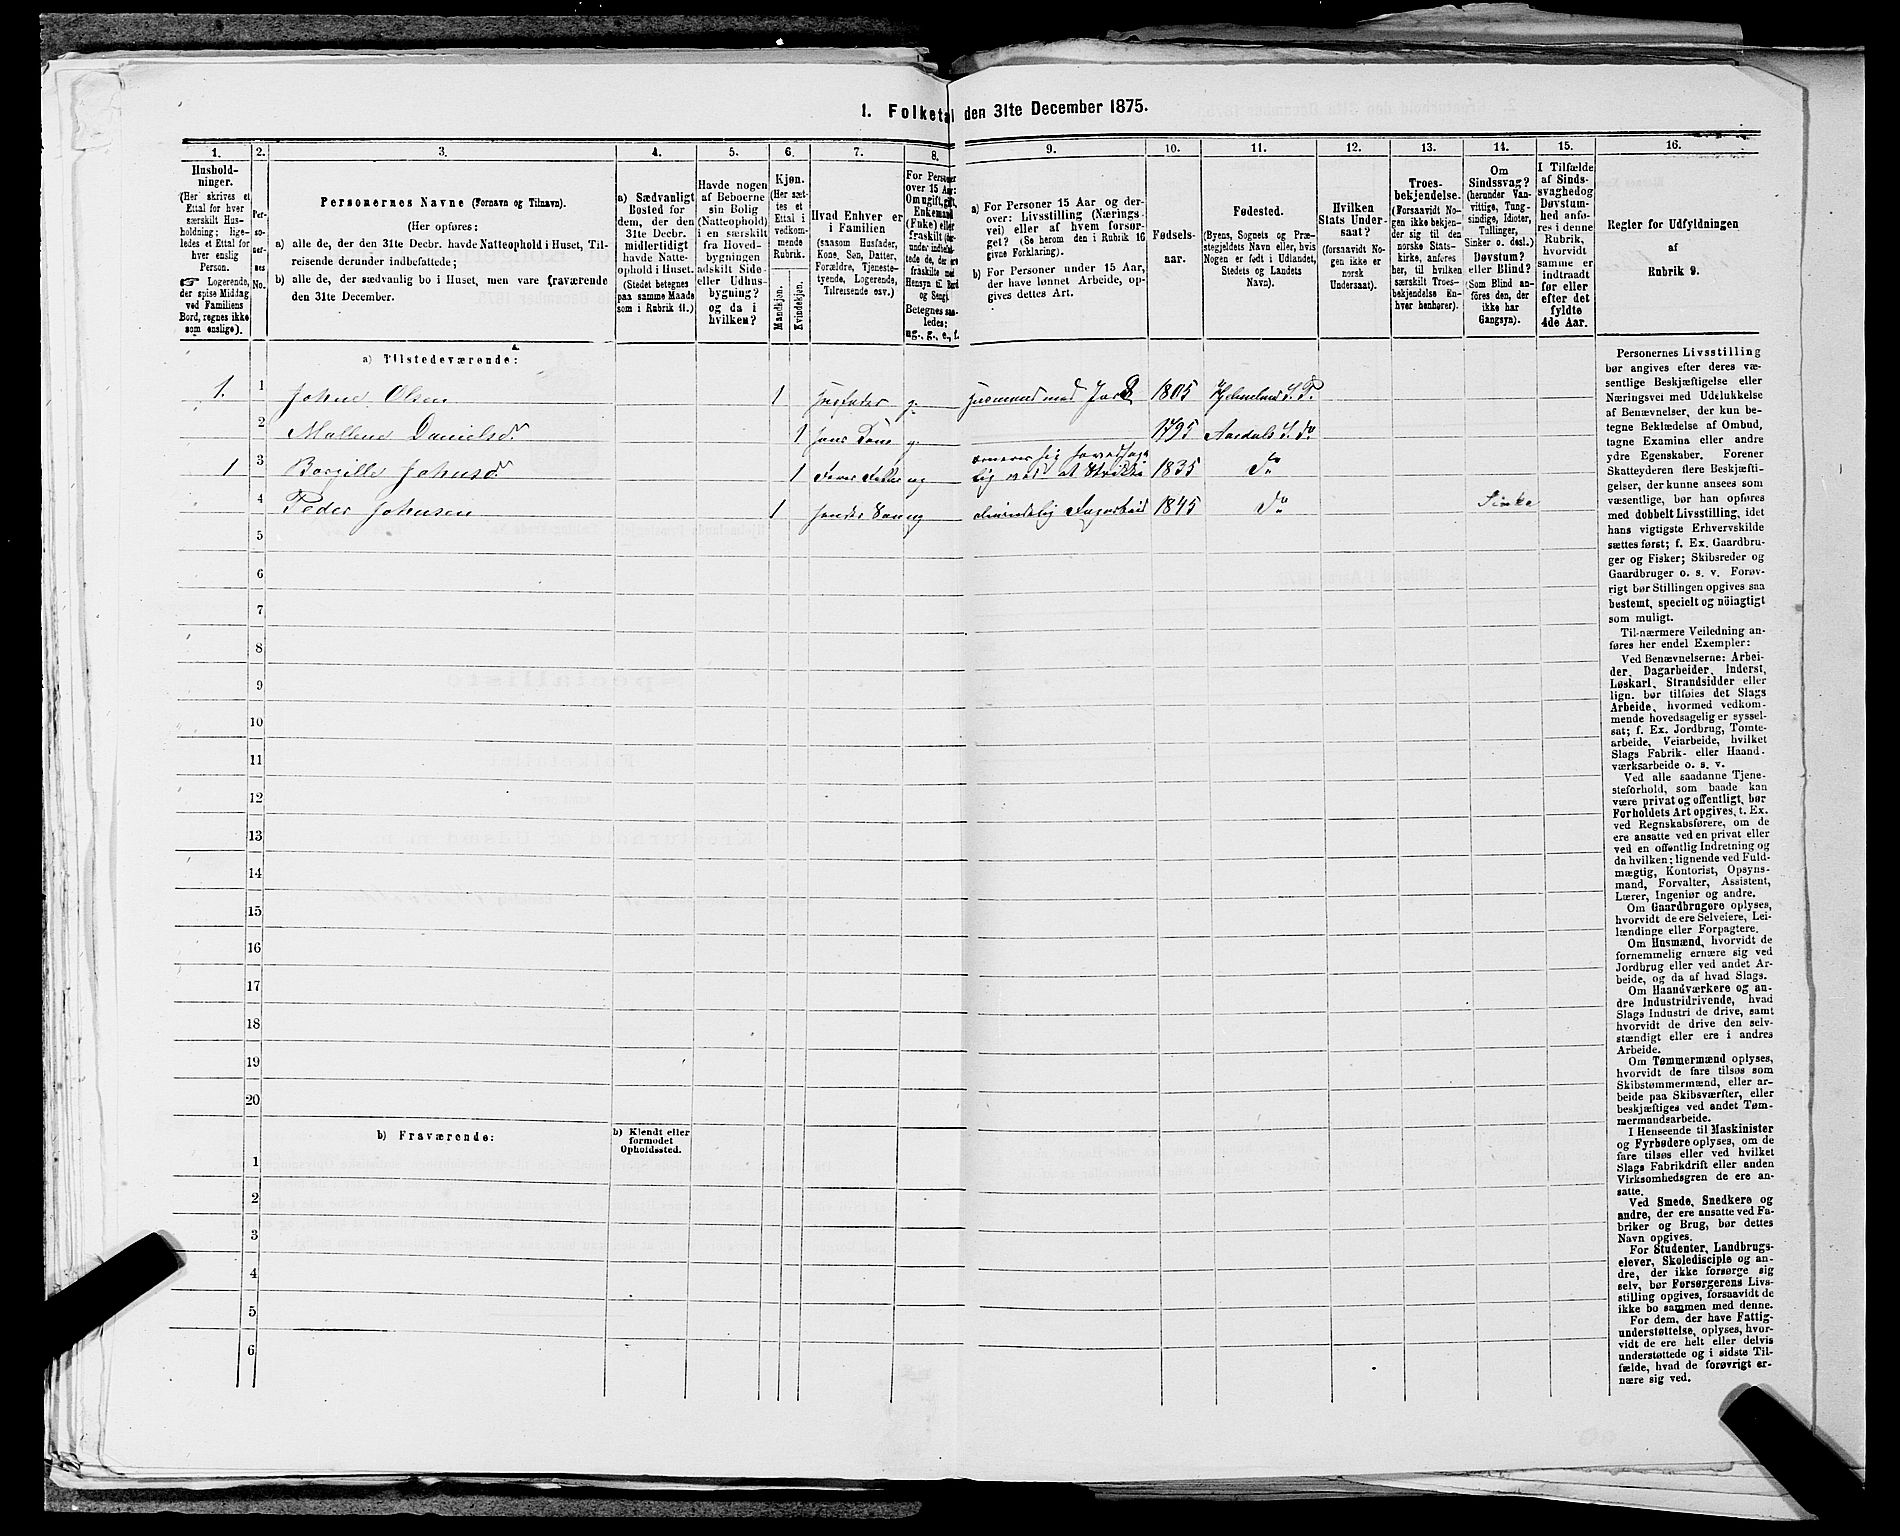 1. Folketal den 31te December 1875.
1. 2. 3. 4. 5. 6. 7. 8. 9. 10. 11. 12. 13. 14. 15. 16.
Hushold-
ninger.
(Her skrives et
Ettal for hver
særskilt Hus-
holdning; lige-
ledes et Ettal for
hver enslig
Person.
☞ Logerende,
der spise Middag
ved Familiens
Bord, regnes ikke
som enslige).
Per-
so-
ner-
nes
No.
Personernes Navne (Fornavn og Tilnavn).
(Her opføres:
a) alle de, der den 31te Decbr. havde Natteophold i Huset, Til-
reisende derunder indbefattede;
b) alle de, der sædvanlig bo i Huset, men vare fraværende
den 31te December.
a) Sædvanligt
Bosted for
dem, der den
31te Decbr.
midlertidigt
havde Natte-
ophold i Huset.
(Stedet betegnes
paa samme Maade
som i Rubrik 11.)
Havde nogen
af Beboerne
sin Bolig
(Natteophold)
i en særskilt
fra Hoved-
bygningen
adskilt Side-
eller Udhus-
bygning?
og da i
hvilken?
Kjøn.
(Her sæt-
tes et
Ettal i
vedkom-
mende
Rubrik.
Mandkjøn.
Kvindekjøn.
Hvad Enhver er
i Familien
(saasom Husfader,
Kone, Søn, Datter,
Forældre, Tjeneste-
tyende, Logerende,
Tilreisende osv.)
For Personer
over 15 Aar:
Om ugift, gift,
Enkemand
(Enke) eller
fraskilt (der-
under indbefat-
tede de, der ere
fraskilte med
Hensyn til Bord
og Seng).
Betegnes saa-
ledes:
ug., g., e., f.
a) For Personer 15 Aar og der-
over: Livsstilling (Nærings-
vei) eller af hvem forsør-
get? (Se herom den i Rubrik 16
givne Forklaring).
b) For Personer under 15 Aar,
der have lønnet Arbeide, op-
gives dettes Art.
Fødsels-
aar.
Fødested.
(Byens, Sognets og Præ-
stegjeldets Navn eller, hvis
Nogen er født i Udlandet,
Stedets og Landets
Navn).
Hvilken
Stats Under-
saat?
(forsaavidt No-
gen ikke er
norsk
Undersaat).
Troes-
bekjendelse.
(Forsaavidt No-
gen ikke bekjen-
der sig til den
norske Stats-
kirke, anføres
her, til hvilken
særskilt Troes-
bekjendelse En-
hver henhører).
Om
Sindssvag?
(herunder Van-
vittige, Tung-
sindige, Idioter,
Tullinger,
Sinker o. desl.)
Døvstum?
eller Blind?
(Som Blind an-
føres den, der
ikke har
Gangsyn).
I Tilfælde
af Sinds-
svaghed og
Døvstum-
hed anfø-
res i denne
Rubrik,
hvorvidt
samme er
indtraadt
før eller
efter det
fyldte
4de Aar.
Regler for Udfyldningen
af
Rubrik 9.
a) Tilstedeværende:
1. 1 Johne Olsen 1 Husfader g. Husmand med Jord 1805 Hjelmeland S. P.
2 Mallene Danielsd. 1 hans Kone g. 1795 Aardals S. do
ernærer sig hovedsage
1 3 Borgille Johnsd. 1 deres Datter ug lig ved at Strikke 1835 do
4 Peder Johnsen 1 Søn ug almindelig 1845 do Sinke
5
6
7
8
9
10
11
12
13
14
15
16
17
18
19
20
b) Fraværende:
b) Kjendt eller
formodet
Opholdssted.
1
2
3
4
5
6
Personernes Livsstilling
bør angives efter deres væ-
sentlige Beskjæftigelse eller
Næringsvei med Udelukkelse
af Benævnelser, der kun be-
tegne Beklædelse af Ombud,
tagne Examina eller andre
ydre Egenskaber. Forener
Skatteyderen flere Beskjæfti-
gelser, der kunne ansees som
væsentlige, bør han opføres
med dobbelt Livsstilling, idet
hans vigtigste Erhvervskilde
sættes først; f. Ex. Gaardbru-
ger og Fisker; Skibsreder og
Gaardbruger o. s. v. Forøv-
rigt bør Stillingen opgives saa
bestemt, specielt og nöiagtigt
som muligt.
Til nærmere Veiledning an-
føres her endel Exempler:
Ved Benævnelserne: Arbei-
der, Dagarbeider, Inderst,
Løskarl, Strandsidder eller
lign. bør tilføies det Slags
Arbeide, hvormed vedkom-
mende hovedsagelig er syssel-
sat; f. Ex. Jordbrug, Tomte-
arbeide, Veiarbeide, hvilket
Slags Fabrik- eller Haand-
værksarbeide o. s. v.
Ved alle saadanne Tjene-
steforhold, som baade kan
være privat og offentligt, bør
Forholdets Art opgives, t. Ex.
ved Regnskabsførere, om de
ere ansatte ved en privat eller
ved en offentlig Indretning og
da hvilken; lignende ved Fuld-
mægtig, Kontorist, Opsyns-
mand, Forvalter, Assistent,
Lærer, Ingeniør og andre.
Om Gaardbrugere oplyses,
hvorvidt de ere Selveiere, Lei-
lændinge eller Forpagtere.
Om Husmænd, hvorvidt de
fornemmelig ernære sig ved
Jordbrug eller ved andet Ar-
beide, og da af hvad Slags.
Om Haandværkere og an-
dre Industridrivende, hvad
Slags Industri de drive, samt
hvorvidt de drive den selv-
stændigt eller ere i andres
Arbeide.
Om Tømmermænd oplyses,
hvorvidt de fare tilsøs som
Skibstømmermænd, eller ar-
beide paa Skibsværfter, eller
beskjæftiges ved andet Tøm-
mermandsarbeide.
I Henseende til Maskinister
og Fyrbødere oplyses, om de
fare tilsøs eller ved hvilket
Slags Fabrikdrift eller anden
Virksomhedsgren de ere an-
satte.
Ved Smede, Snedkere og
andre, der ere ansatte ved Fa-
briker og Brug, bør dettes
Navn opgives.
For Studenter, Landbrugs-
elever, Skoledisciple og an-
dre, der ikke forsørge sig
selv, bør Forsørgerens Livs-
stilling opgives, forsaavidt de
ikke bo sammen med denne.
For dem, der have Fattig-
understøttelse, oplyses, hvor-
vidt de ere helt eller delvis
understøttede og i sidste Til-
fælde, hvad de forøvrigt er-
nære sig ved.